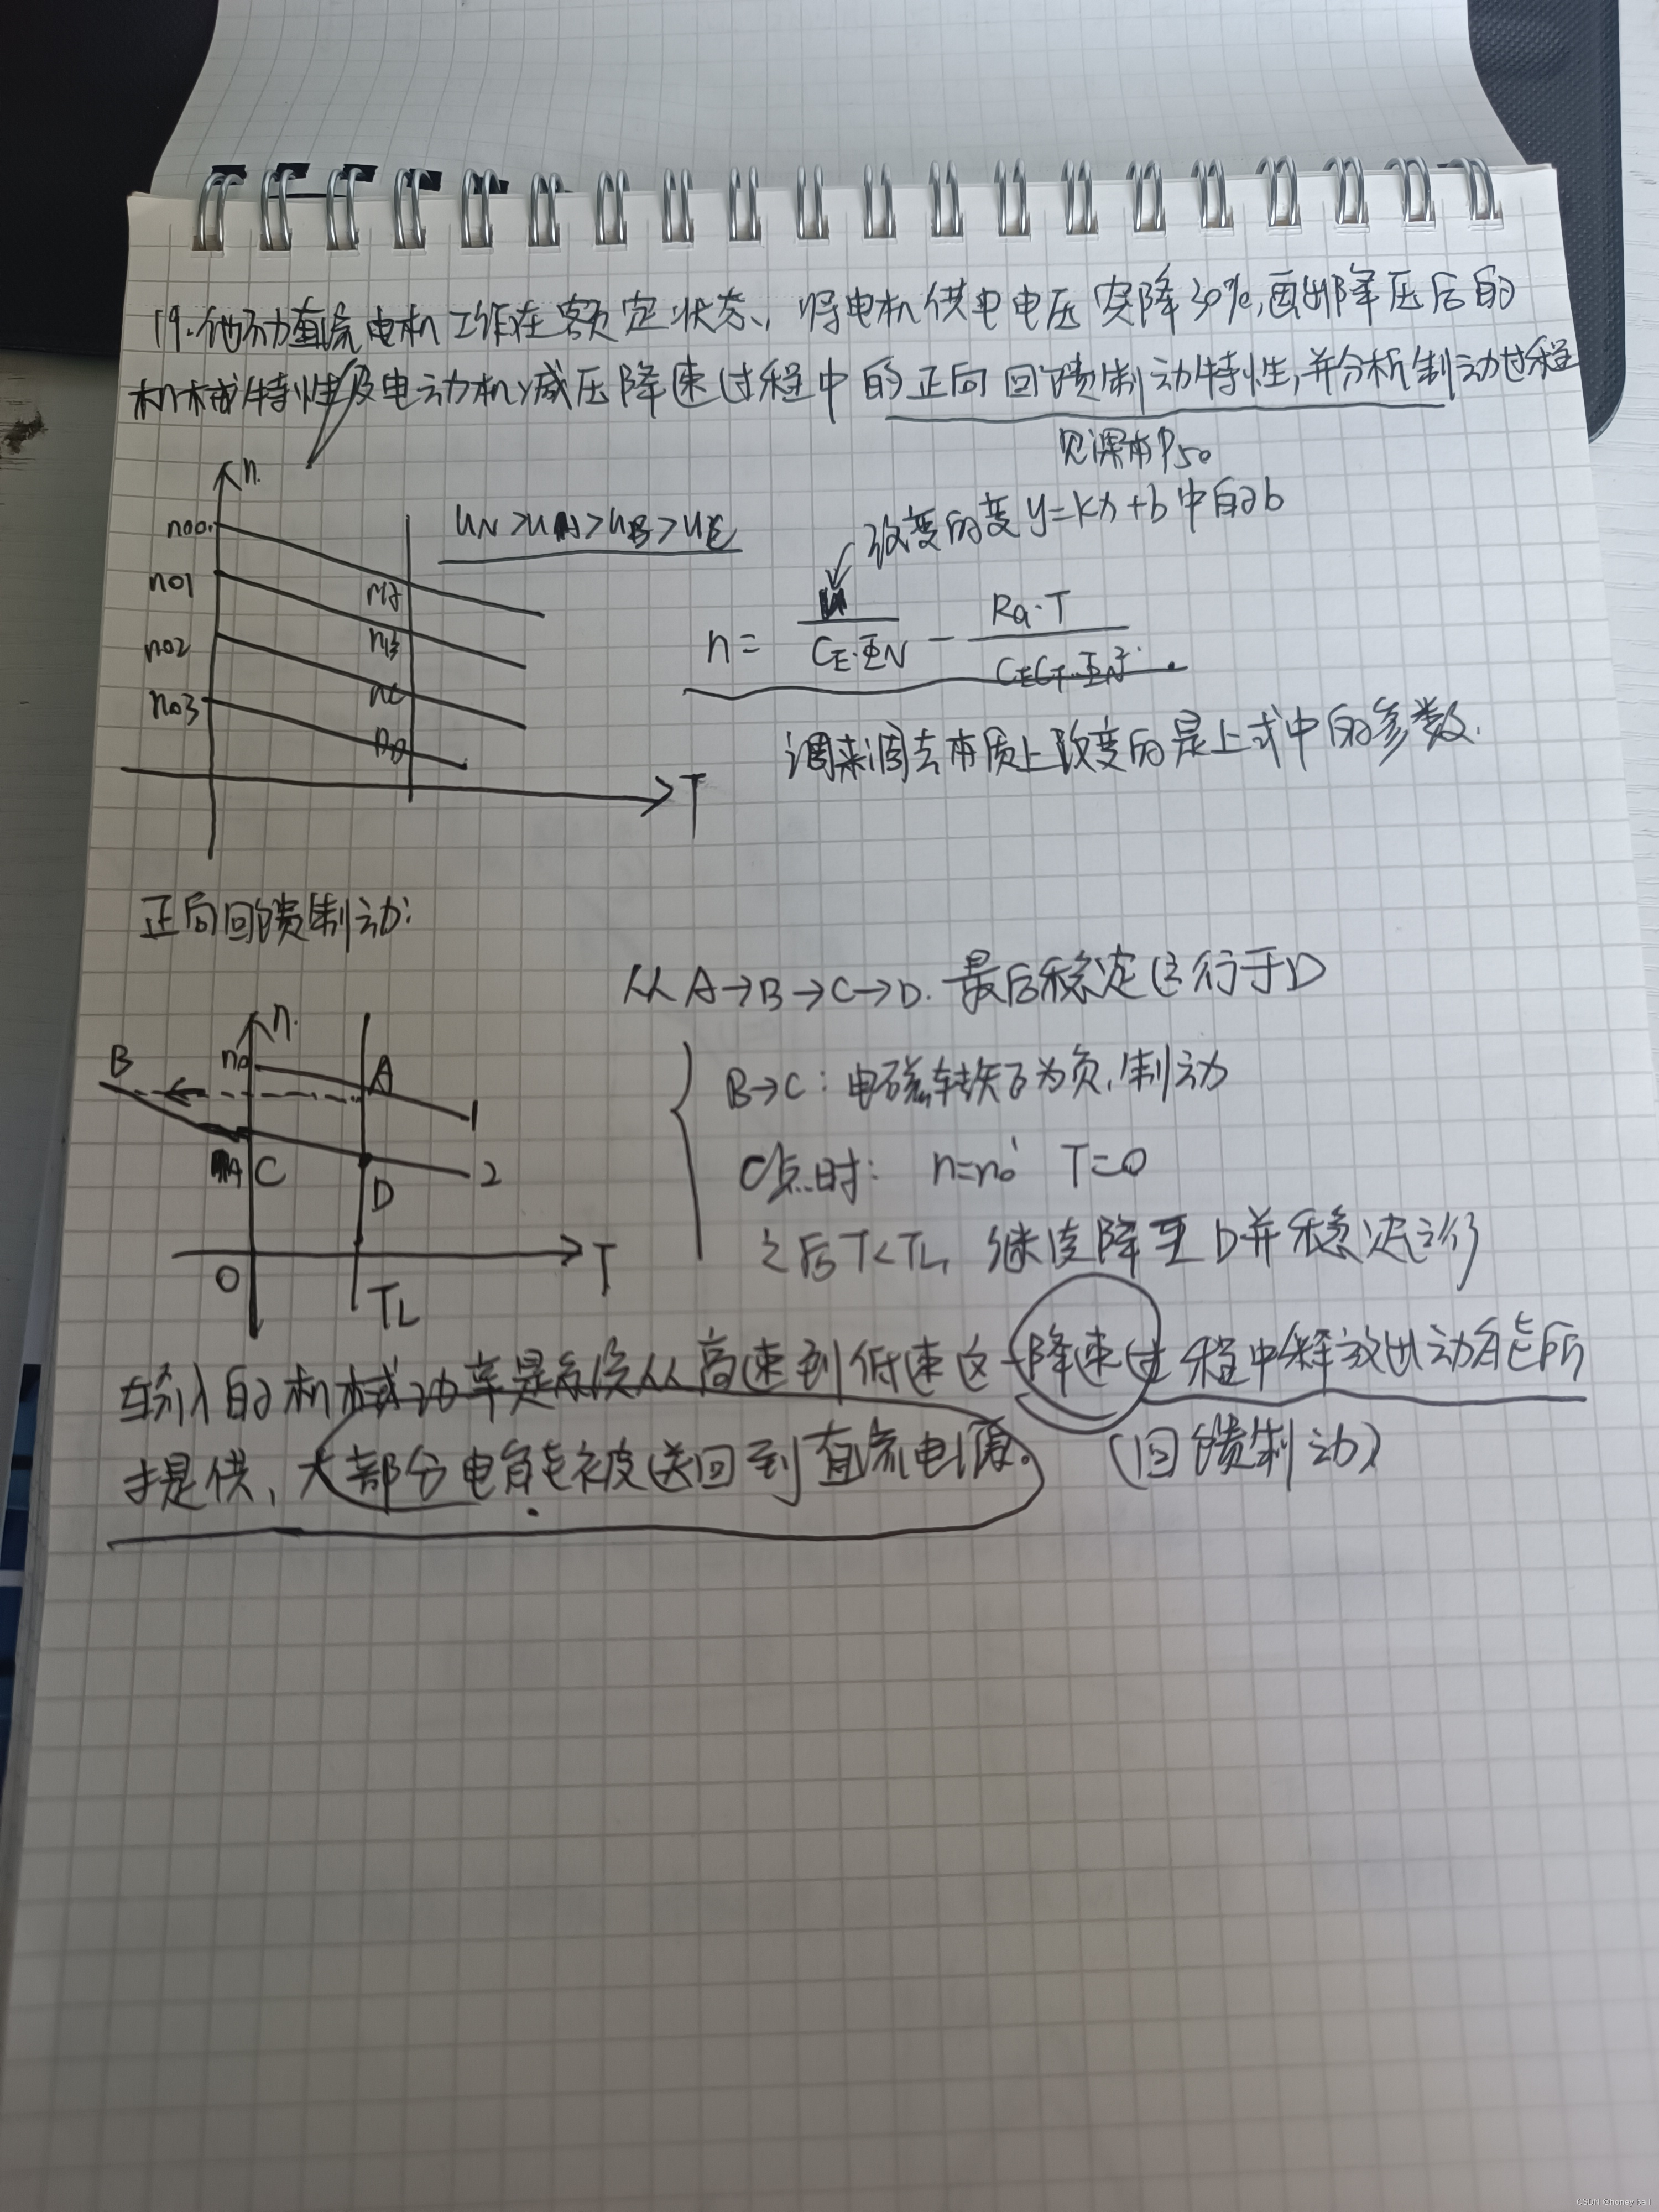 19.他励直流电机工作在额定状态,将电机供电电压突降30%,画出降压后的
机械特性及电动机减压降速过程中的正向回馈制动特性,并分析制动过程
见课本P50
n
n00
n01
n02
n03
nA
nB
nC
nD
T
UN>UA>UB>UC
改变的变y=kx+b中的b
n= U/(CE·ΦN) − Ra·T/(CECT·ΦN²)
调来调去本质上改变的是上式中的参数.
正向回馈制动:
从A→B→C→D.最后稳定运行于D
B→C:电磁转矩T为负,制动
C点时: n=n0' T=0
之后T<TL,继续降至D并稳定运行
n
n0
B
A
1
C
D
2
O
TL
T
输入的机械功率是系统从高速到低速这一降速过程中释放出动能所
提供,大部分电能被送回到直流电源。 (回馈制动)
CSDN @honey ball